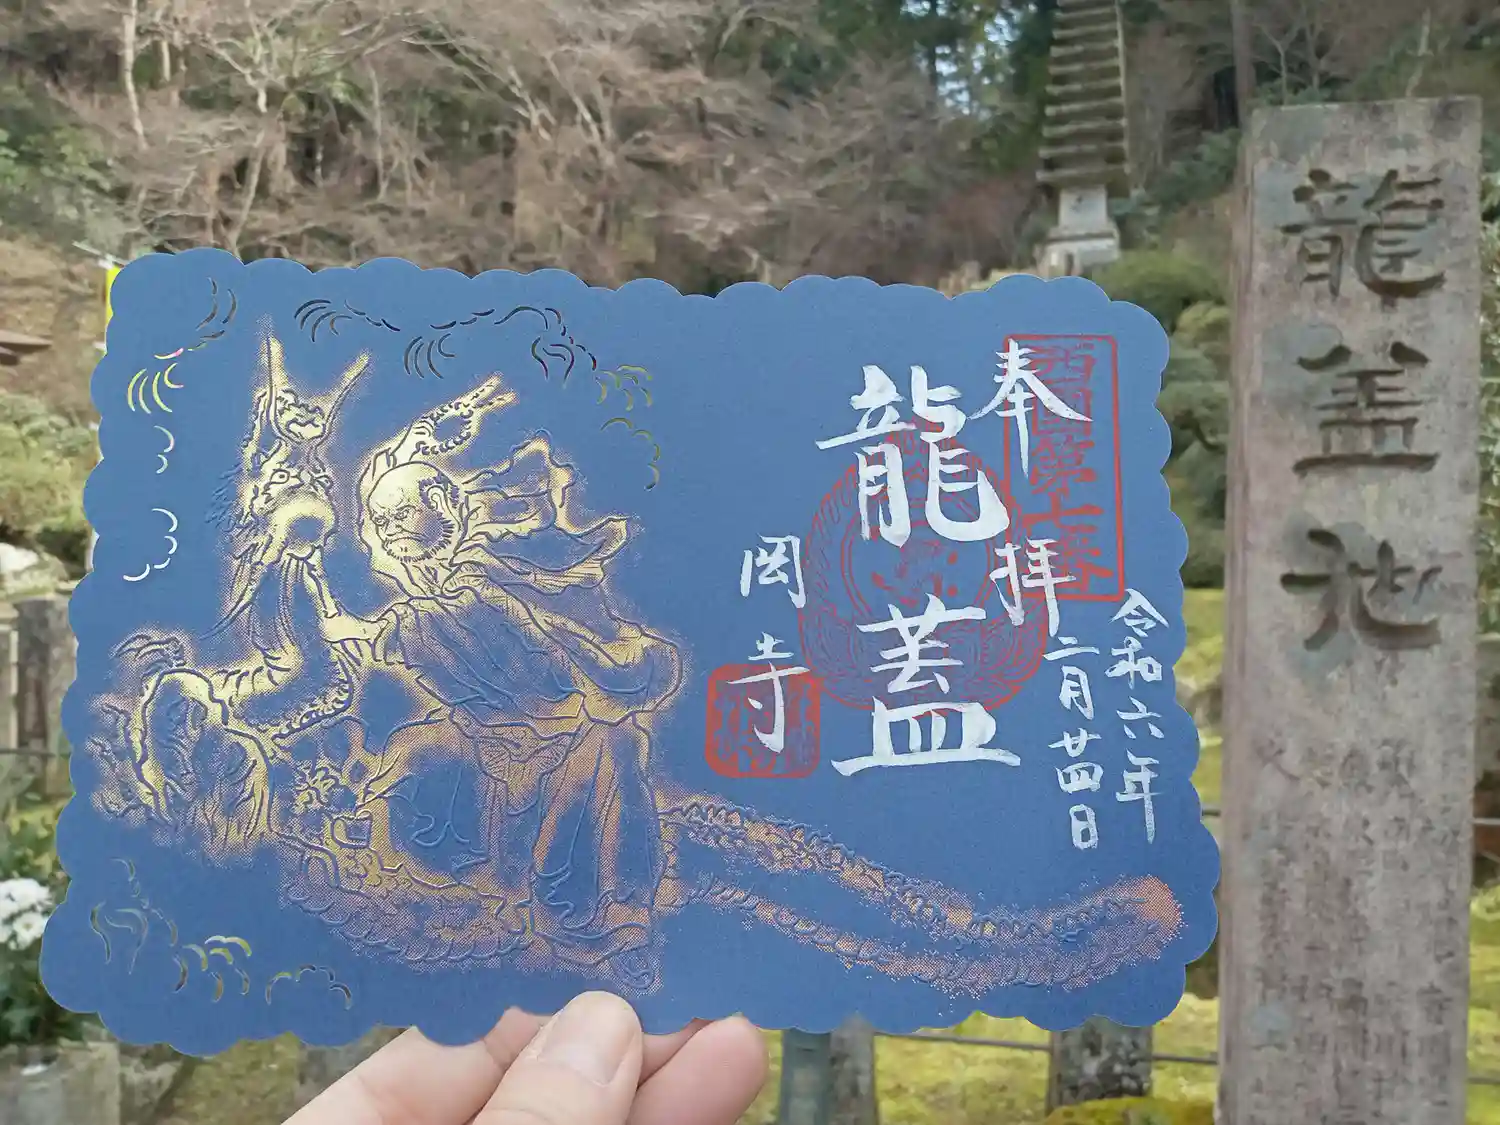 奉拝
令和六年
二月廿四日
龍蓋
岡寺
西国第七番
龍蓋池